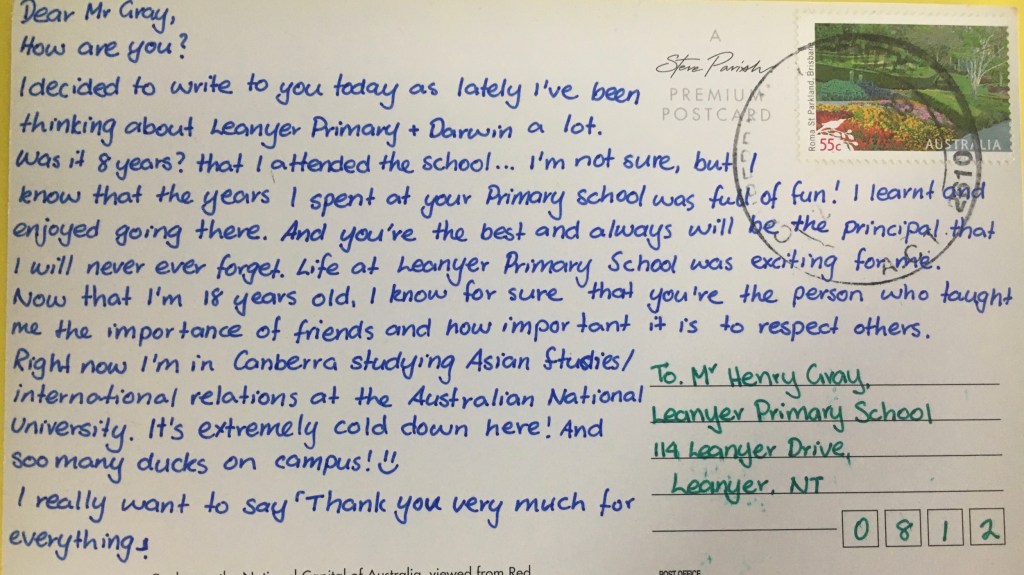 Dear Mr Gray,
How are you?
I decided to write to you today as lately I've been
thinking about Leanyer Primary + Darwin a lot.
Was it 8 years? that I attended the school... I'm not sure, but I
know that the years I spent at your Primary school was full of fun! I learnt and
enjoyed going there. And you're the best and always will be the principal that
I will never ever forget. Life at Leanyer Primary School was exciting for me.
Now that I'm 18 years old, I know for sure that you're the person who taught
me the importance of friends and how important it is to respect others.
Right now I'm in Canberra studying Asian Studies/
international relations at the Australian National
University. It's extremely cold down here! And
soo many ducks on campus!
I really want to say "Thank you very much for
everything!
A
Steve Parish
PREMIUM
POSTCARD
Roma St Parkland, Brisbane
55c
AUSTRALIA
2010
ACT
To. Mr Henry Gray,
Leanyer Primary School
114 Leanyer Drive,
Leanyer, NT
0812
the National Capital of Australia, viewed from Red
POST OFFICE